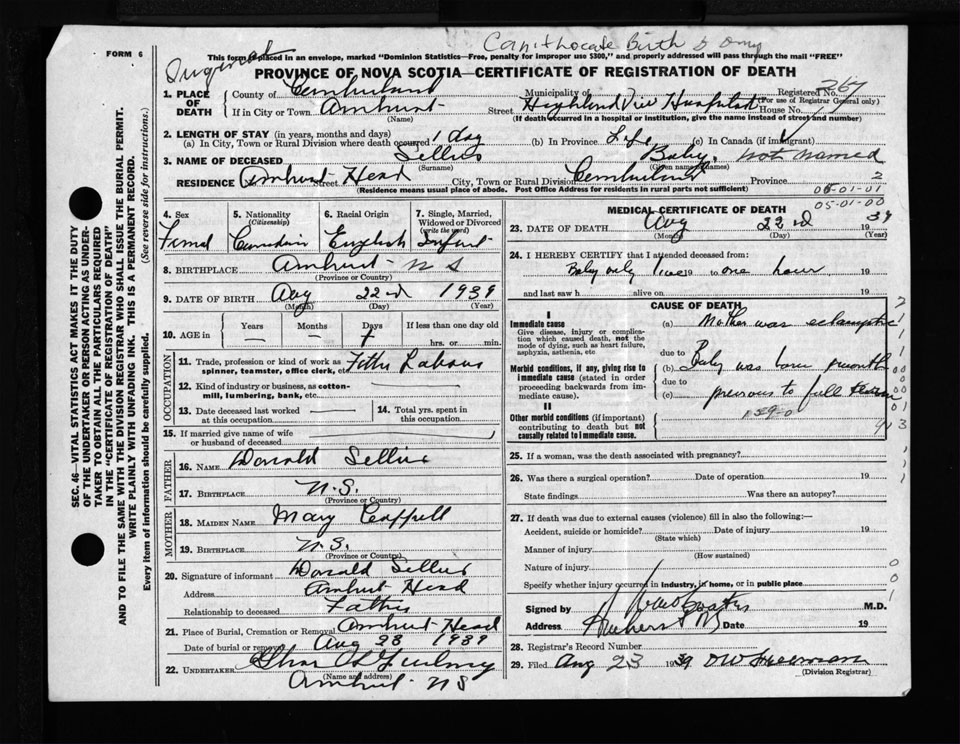 FORM 6
This form if placed in an envelope, marked "Dominion Statistics—Free, penalty for improper use $300," and properly addressed will pass through the mail "FREE"
Birth
PROVINCE OF NOVA SCOTIA—CERTIFICATE OF REGISTRATION OF DEATH
Registered No. 267
(For use of Registrar General only)
1. PLACE OF DEATH
County of Cumberland
Municipality of
If in City or Town Amherst
(Name)
Street Highland View Hospital House No.
(If death occurred in a hospital or institution, give the name instead of street and number)
2. LENGTH OF STAY (in years, months and days)
(a) In City, Town or Rural Division where death occurred 1 day
(b) In Province Life (c) In Canada (if immigrant)
3. NAME OF DECEASED Sellers Baby, not named
(Surname) (Given name or names)
RESIDENCE Amherst Head Street City, Town or Rural Division Cumberland Province 2
(Residence means usual place of abode. Post Office Address for residents in rural parts not sufficient)
05-01-01
05-01-00
4. Sex
Femal
5. Nationality
(Citizenship)
Canadian
6. Racial Origin
English
7. Single, Married, Widowed or Divorced
(write the word)
Infant
8. BIRTHPLACE Amherst N S
(Province or Country)
9. DATE OF BIRTH Aug 22nd 1939
(Month) (Day) (Year)
10. AGE in
Years
Months
Days
If less than one day old
hrs. or min.
OCCUPATION
11. Trade, profession or kind of work as spinner, teamster, office clerk, etc. Father Labour
12. Kind of industry or business, as cotton-mill, lumbering, bank, etc.
13. Date deceased last worked at this occupation
14. Total yrs. spent in this occupation
15. If married give name of wife or husband of deceased
FATHER
16. NAME Donald Sellers
17. BIRTHPLACE N.S.
(Province or Country)
MOTHER
18. MAIDEN NAME Mary
19. BIRTHPLACE N.S.
(Province or Country)
20. Signature of informant Donald Sellers
Address Amherst Head
Relationship to deceased Father
21. Place of Burial, Cremation or Removal Amherst Head
Date of burial or removal Aug 23 1939
22. UNDERTAKER
(Name and address)
Amherst NS
MEDICAL CERTIFICATE OF DEATH
23. DATE OF DEATH Aug 22nd 1939
(Month) (Day) (Year)
24. I HEREBY CERTIFY that I attended deceased from:
Baby only lived 19 to one hour 19
and last saw h alive on 19
CAUSE OF DEATH
I
Immediate cause
Give disease, injury or complication which caused death, not the mode of dying, such as heart failure, asphyxia, asthenia, etc
(a) Mother was eclamptic
due to
Morbid conditions, if any, giving rise to immediate cause (stated in order proceeding backwards from immediate cause).
(b) Baby was born month
due to
(c) previous to full term
159-0
II
Other morbid conditions (if important) contributing to death but not causally related to immediate cause.
25. If a woman, was the death associated with pregnancy?
26. Was there a surgical operation? Date of operation 19
State findings Was there an autopsy?
27. If death was due to external causes (violence) fill in also the following:—
Accident, suicide or homicide? Date of injury 19
(State which)
Manner of injury
(How sustained)
Nature of injury
Specify whether injury occurred in industry, in home, or in public place
Signed by M.D.
Address Amherst NS Date 19
28. Registrar's Record Number
29. Filed Aug 23 1939
(Division Registrar)
SEC. 46—VITAL STATISTICS ACT MAKES IT THE DUTY OF THE UNDERTAKER OR PERSON ACTING AS UNDERTAKER TO OBTAIN ALL THE PARTICULARS REQUIRED IN THE "CERTIFICATE OF REGISTRATION OF DEATH"
AND TO FILE THE SAME WITH THE DIVISION REGISTRAR WHO SHALL ISSUE THE BURIAL PERMIT.
WRITE PLAINLY WITH UNFADING INK. THIS IS A PERMANENT RECORD.
Every item of information should be carefully supplied. (See reverse side for instructions.)